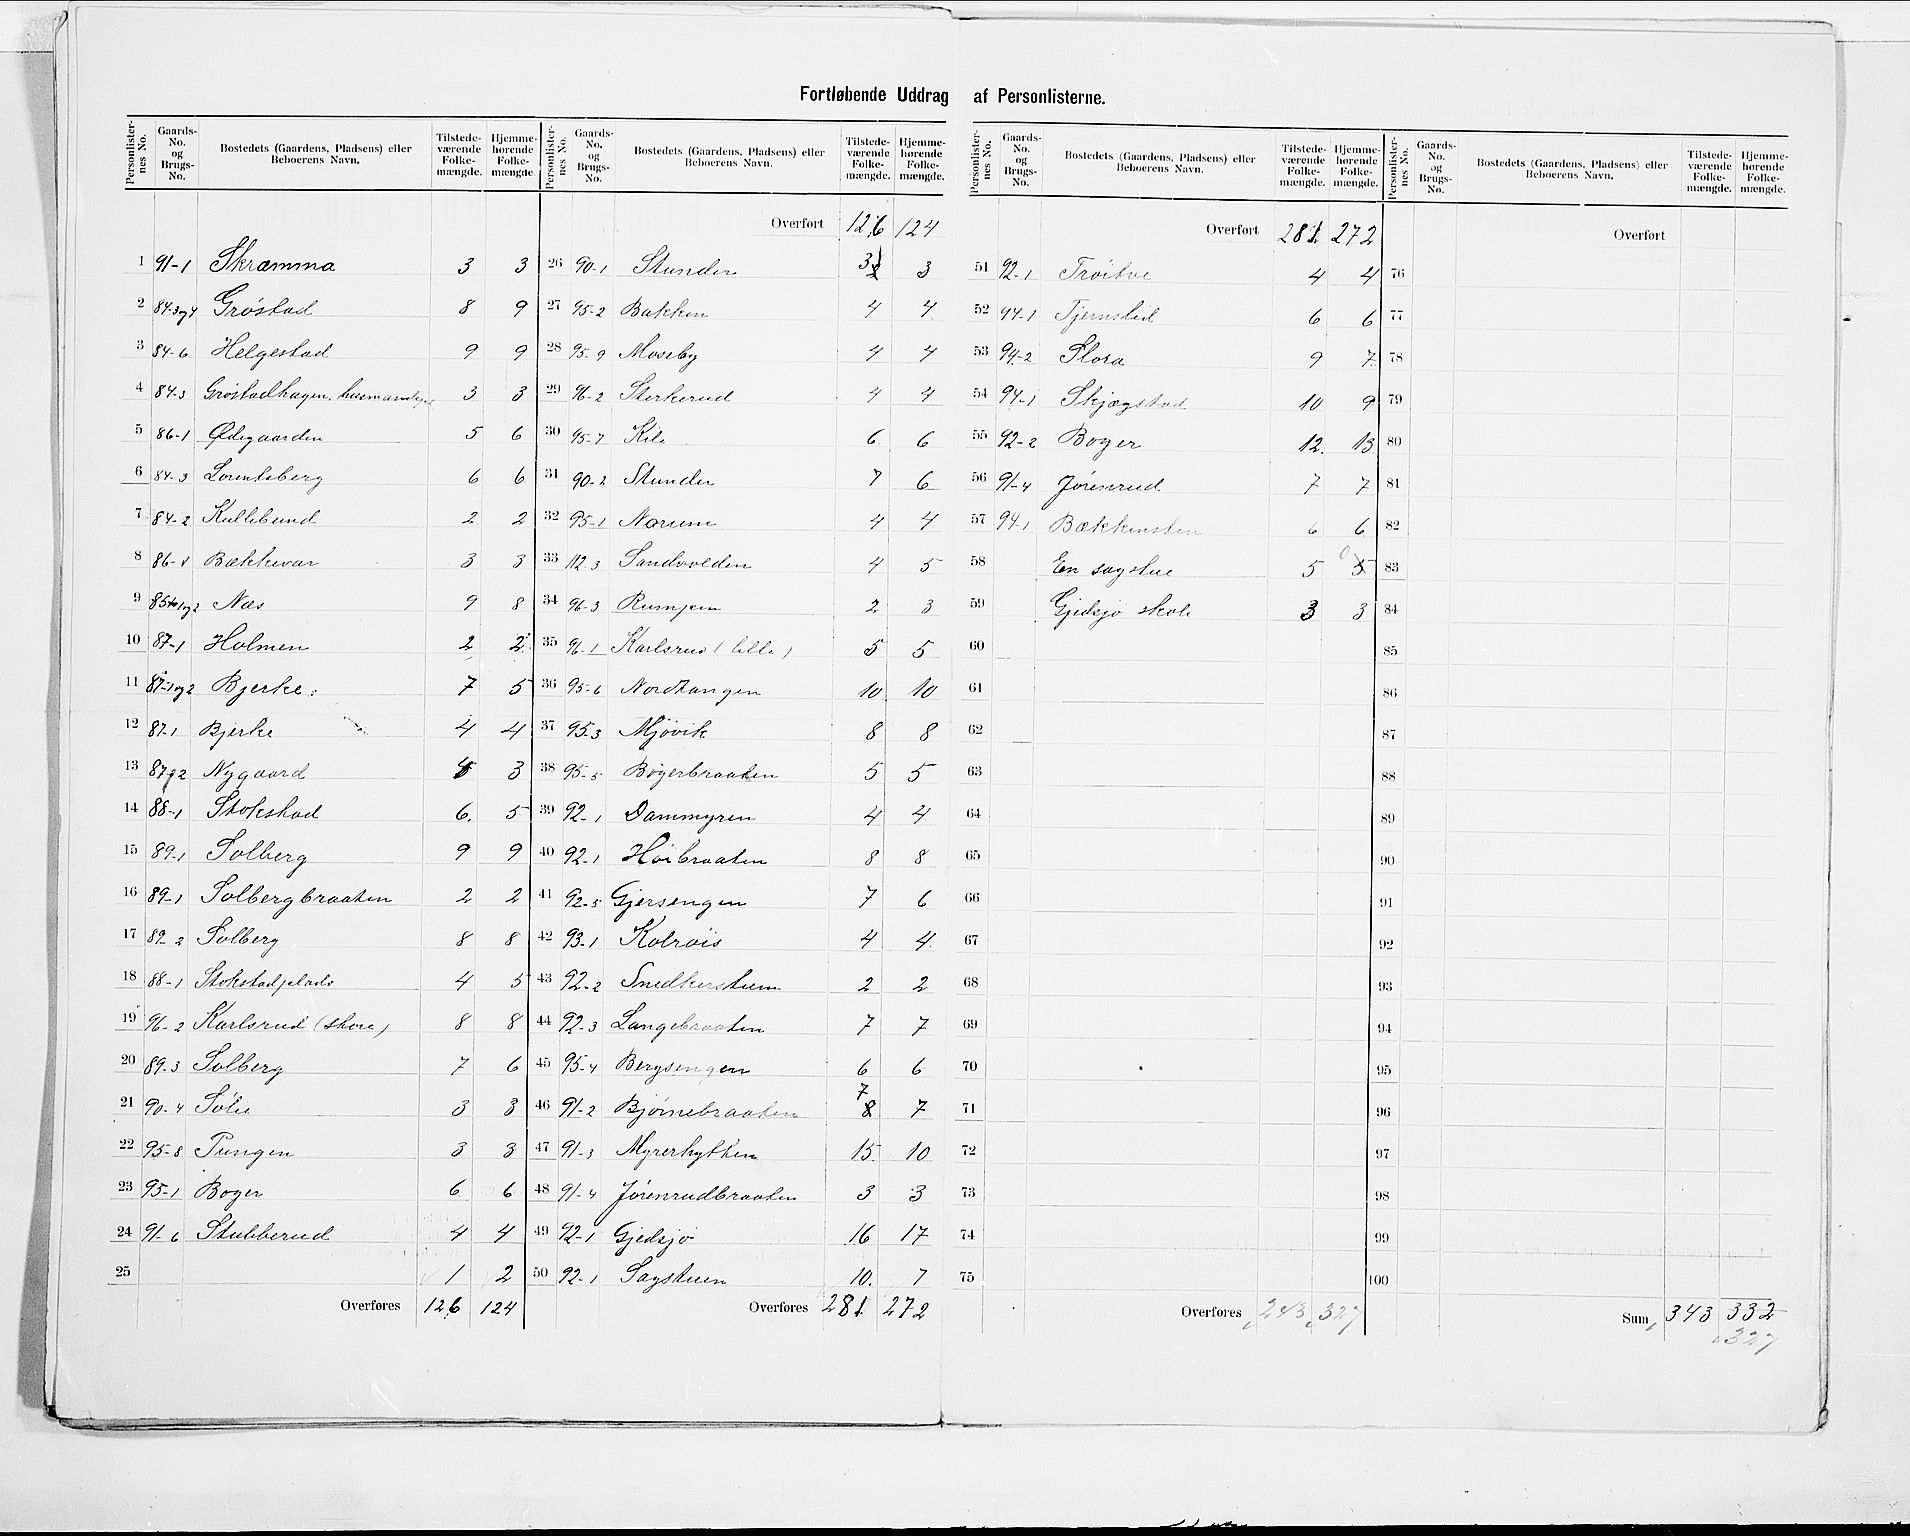 Fortløbende Uddrag af Personlisterne.
Personlister-nes No. Gaards-No. og Brugs-No. Bostedets (Gaardens, Pladsens) eller Beboerens Navn. Tilstede-værende Folke-mængde. Hjemme-hørende Folke-mængde.
1 91-1 Skramma 3 3
2 84-3og4 Grøstad 8 9
3 84-6 Helgestad 9 9
4 84-3 Grøstadhagen, 3 3
5 86-1 Ødegaarden 5 6
6 84-3 Lorentsberg 6 6
7 84-2 Kullebund 2 2
8 86- Bækkevar 3 3
9 Næs 9 8
10 87-1 Holmen 2 2
11 87-1og2 Bjerke 7 5
12 87-1 Bjerke 4 4
13 87-2 Nygaard 3
14 88-1 Stokstad 6. 5
15 89-1 Solberg 9 9
16 89-1 Solbergbraaten 2 2
17 89-2 Solberg 8 8
18 88-1 Stokstadplads 4 5
19 96-2 Karlsrud (store) 8 8
20 89-3 Solberg 7 6
21 90-4 Solie 3 3
22 95-8 Tungen 3 3
23 95-1 Boger 6 6
24 91-6 Stubberud 4 4
25 1 2
Overføres 126 124
Personlister-nes No. Gaards-No. og Brugs-No. Bostedets (Gaardens, Pladsens) eller Beboerens Navn. Tilstede-værende Folke-mængde. Hjemme-hørende Folke-mængde.
Overført 126 124
26 90-1 Stunder 3 3
27 95-2 Bakken 4 4
28 95-9 Moseby 4 4
29 96-2 Sterkerud 4 4
30 95-7 Kile 6 6
31 90-2 Stunder 7 6
32 95-1 Narum 4 4
33 112-3 Sandvolden 4 5
34 96-3 Rumpen 2 3
35 96-1 Karlsrud (lille) 5 5
36 95-6 Nordtangen 10 10
37 95-3 Mjøvik 8 8
38 95-5 Bøgerbraaten 5 5
39 92-1 Dammyren 4 4
40 92-1 Høibraaten 8 8
41 92-5 Gjersengen 7 6
42 93-1 Kolrøis 4 4
43 92-2 Snedkerstuen 2 2
44 92-3 Langebraaten 7 7
45 95-4 Bergsengen 6 6
46 91-2 Bjørnebraaten 7 8 7
47 91-3 Myrerhytten 15 10
48 91-4 Jørenrudbraaten 3 3
49 92-1 Gjedsjø 16 17
50 92-1 Sagstuen 10. 7
Overføres 281 272
Personlister-nes No. Gaards-No. og Brugs-No. Bostedets (Gaardens, Pladsens) eller Beboerens Navn. Tilstede-værende Folke-mængde. Hjemme-hørende Folke-mængde.
Overført 281 272
51 92-1 Trøitve 4 4
52 94-1 Tjernslid 6 6
53 94-2 Flora 9 7
54 94-1 Skjægstad 10 9
55 92-2 Boger 12. 13
56 91-4 Jørenrud 7 7
57 94-1 Bækkensten 6 6
58 En sagstue 5 0 5
59 Gjedsjø skole 3 3
60
61
62
63
64
65
66
67
68
69
70
71
72
73
74
75
Overføres 343 327
Personlister-nes No. Gaards-No. og Brugs-No. Bostedets (Gaardens, Pladsens) eller Beboerens Navn. Tilstede-værende Folke-mængde. Hjemme-hørende Folke-mængde.
Overført
76
77
78
79
80
81
82
83
84
85
86
87
88
89
90
91
92
93
94
95
96
97
98
99
100
Sum 343 332
327